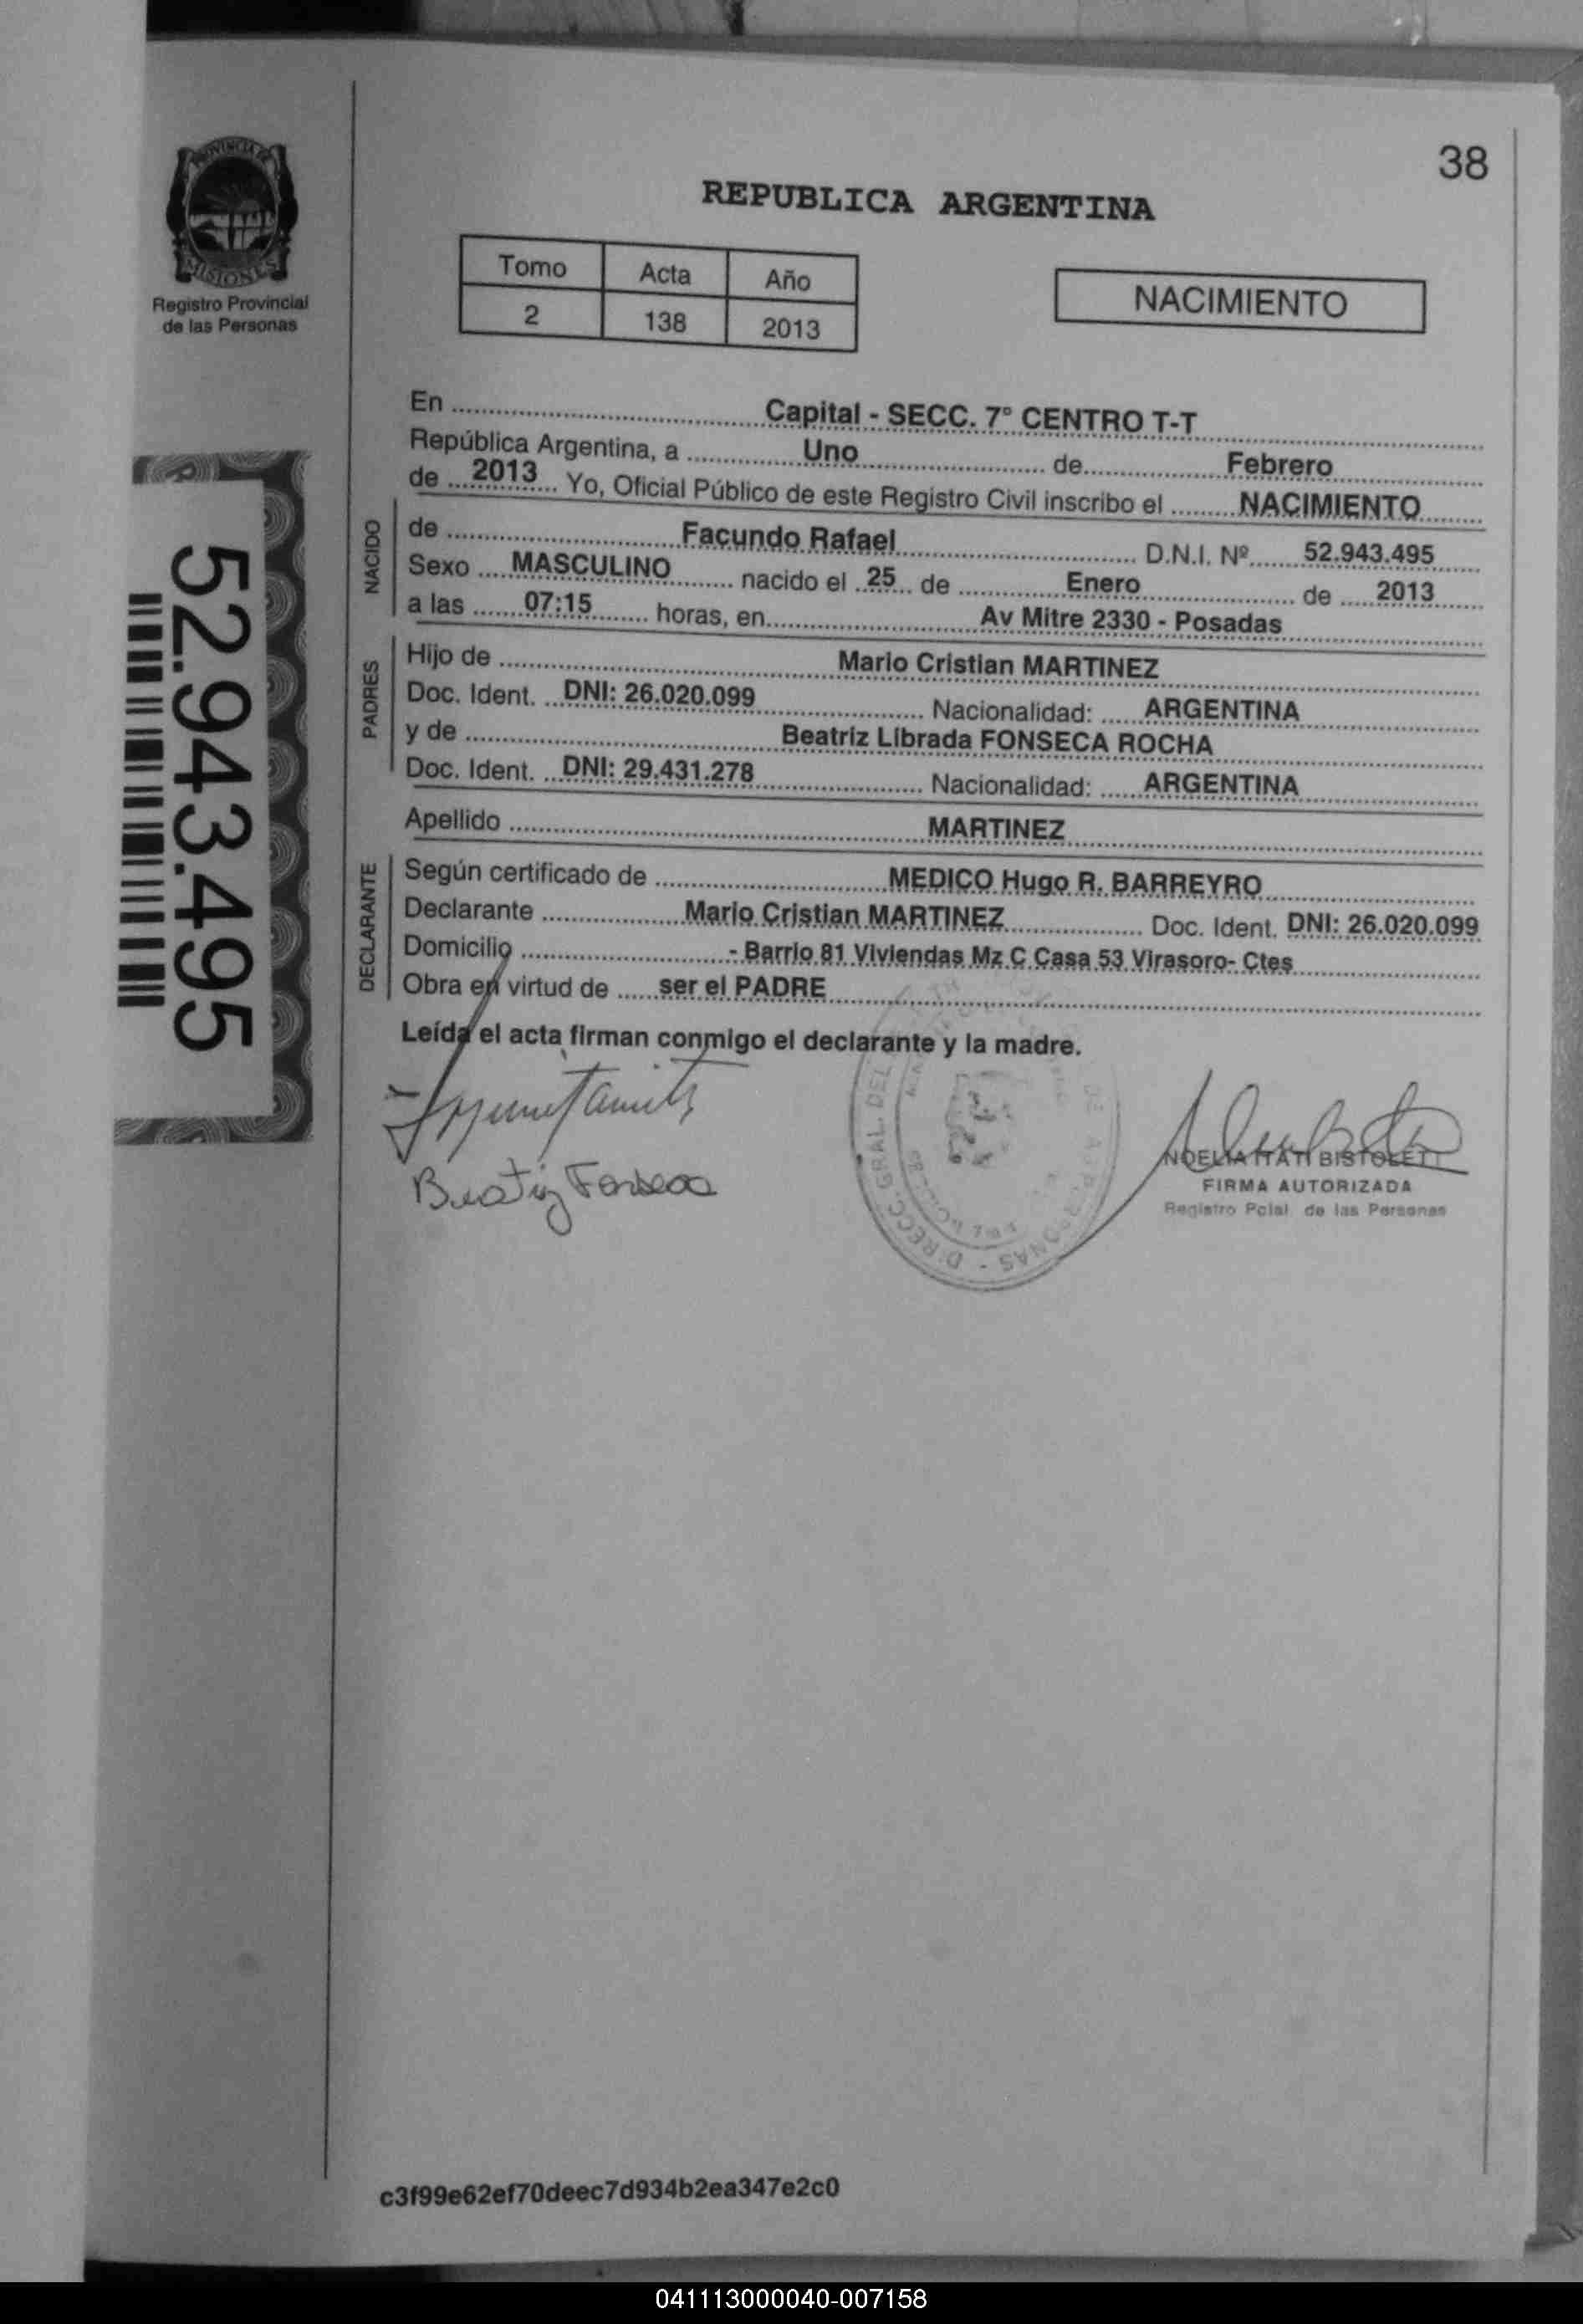 38
PROVINCIA DE
MISIONES
Registro Provincial
de las Personas
REPUBLICA ARGENTINA
Tomo Acta Año
2 138 2013
NACIMIENTO
52.943.495
En ........ Capital - SECC. 7° CENTRO T-T
República Argentina, a ........ Uno ........ de ........ Febrero
de ... 2013 ... Yo, Oficial Público de este Registro Civil inscribo el ........ NACIMIENTO
NACIDO
de ........ Facundo Rafael ........ D.N.I. Nº ........ 52.943.495
Sexo .... MASCULINO ........ nacido el .. 25 .. de ........ Enero ........ de ..... 2013
a las ...... 07:15 ........ horas, en ........ Av Mitre 2330 - Posadas
PADRES
Hijo de ........ Mario Cristian MARTINEZ
Doc. Ident. ... DNI: 26.020.099 ........ Nacionalidad: ...... ARGENTINA
y de ........ Beatriz Librada FONSECA ROCHA
Doc. Ident. ... DNI: 29.431.278 ........ Nacionalidad: ...... ARGENTINA
Apellido ........ MARTINEZ
DECLARANTE
Según certificado de ........ MEDICO Hugo R. BARREYRO
Declarante ........ Mario Cristian MARTINEZ ........ Doc. Ident. DNI: 26.020.099
Domicilio ........ - Barrio 81 Viviendas Mz C Casa 53 Virasoro- Ctes
Obra en virtud de ...... ser el PADRE
Leída el acta firman conmigo el declarante y la madre.
Beatriz Fonseca
DIRECC. GRAL. DEL
PERSONAS -
NOELIA ITATI BISTOLETTI
FIRMA AUTORIZADA
Registro Pcial. de las Personas
c3f99e62ef70deec7d934b2ea347e2c0
041113000040-007158